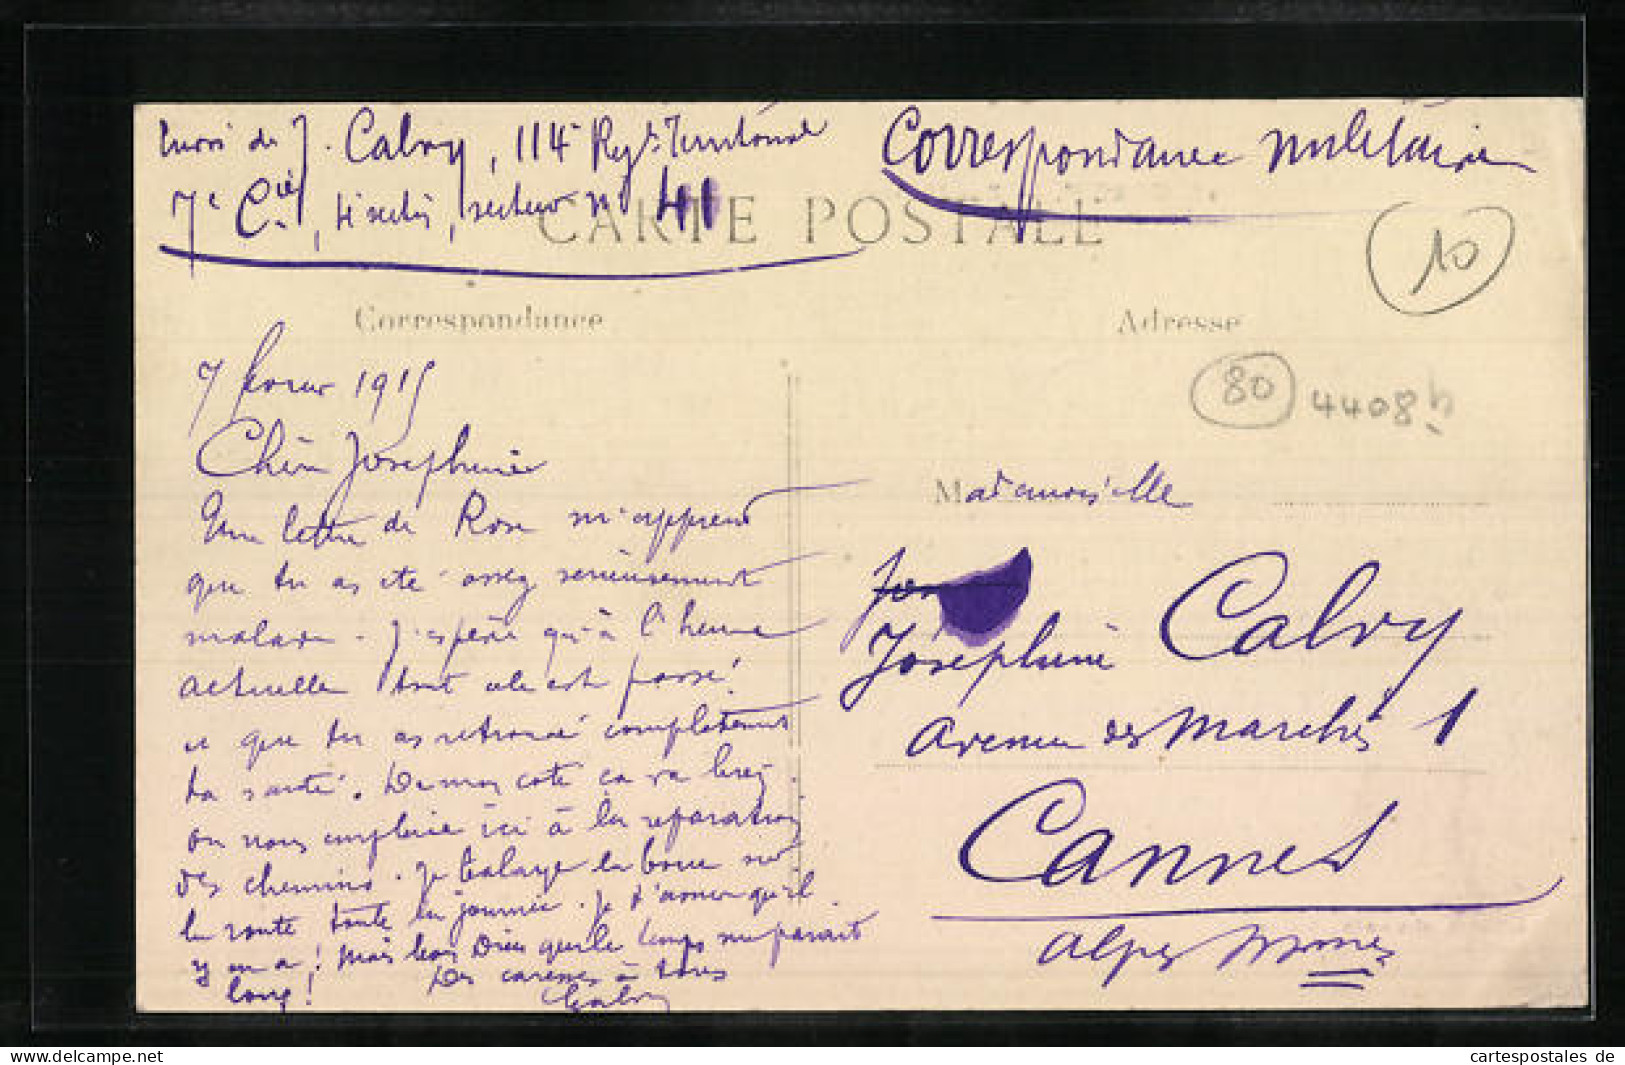 Envoi de J. Calvy, 114e Rgt Territorial
7e Cie, 4e section, secteur no 41
Correspondance militaire
CARTE POSTALE
10
Correspondance
Adresse
80 4408h
7 février 1915
Chère Joséphine
Une lettre de Rose m'apprend
que tu as été assez sérieusement
malade. J'espère qu'à l'heure
actuelle tout cela est passé
et que tu as retrouvé complètement
ta santé. De mon côté ça va bien.
on nous emploie ici à la réparation
des chemins. Je balaye la boue sur
la route toute la journée. Je t'assure qu'il
y en a! Mais bon Dieu que le temps me paraît
long!
Des caresses à tous
Calvy
Mademoiselle
Joséphine Calvy
Avenue des Marchés 1
Cannes
Alpes Mmes
www.delcampe.net
cartespostales de